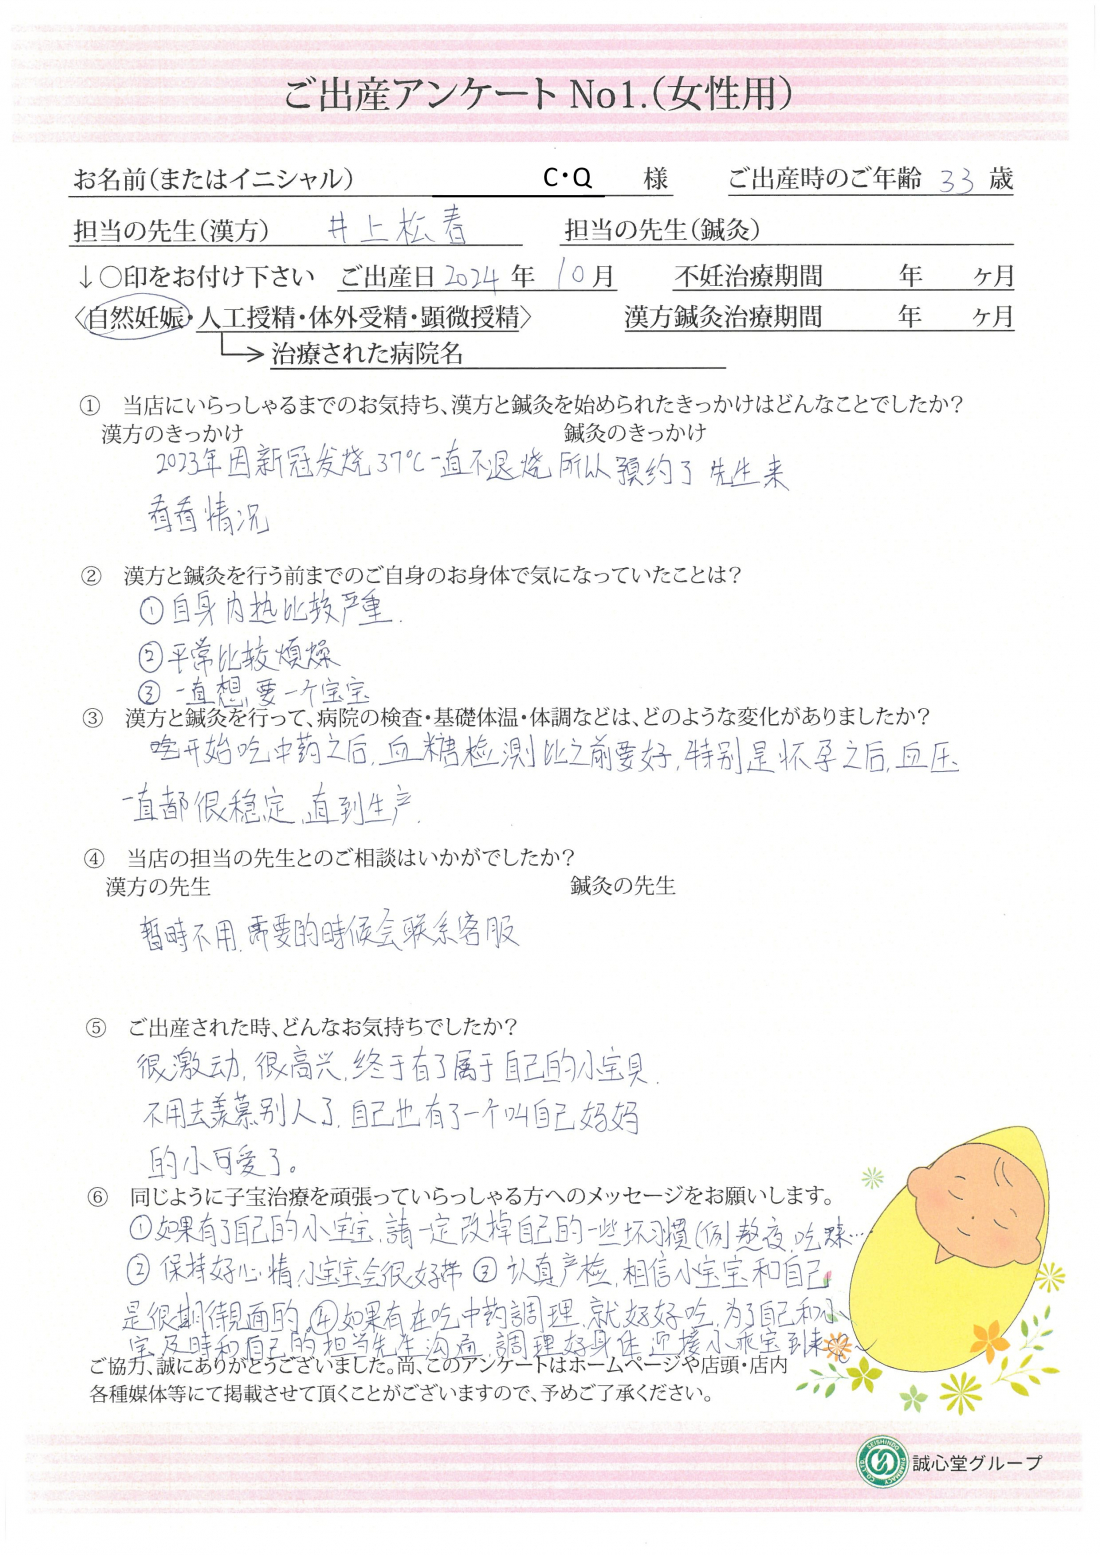 ご出産アンケート No1.(女性用)
お名前(またはイニシャル) C・Q 様 ご出産時のご年齢 33 歳
担当の先生(漢方) 井上松春 担当の先生(鍼灸)
↓○印をお付け下さい ご出産日 2024 年 10 月 不妊治療期間 年 ヶ月
〈自然妊娠・人工授精・体外受精・顕微授精〉 漢方鍼灸治療期間 年 ヶ月
治療された病院名
① 当店にいらっしゃるまでのお気持ち、漢方と鍼灸を始められたきっかけはどんなことでしたか?
漢方のきっかけ 鍼灸のきっかけ
2023年因新冠发烧37℃一直不退烧所以預約了先生来
看看情况
② 漢方と鍼灸を行う前までのご自身のお身体で気になっていたことは?
①自身内热比较严重.
②平常比较煩燥
③ 一直想要一个宝宝
③ 漢方と鍼灸を行って、病院の検査・基礎体温・体調などは、どのような変化がありましたか?
开始吃中药之后,血糖检测比之前要好,特别是怀孕之后,血压
一直都很稳定,直到生产.
④ 当店の担当の先生とのご相談はいかがでしたか?
漢方の先生 鍼灸の先生
暂時不用,需要的時候会联系客服
⑤ ご出産された時、どんなお気持ちでしたか?
很激动,很高兴,终于有了属于自己的小宝貝.
不用去羡慕别人了,自己也有了一个叫自己妈妈
的小可爱了。
⑥ 同じように子宝治療を頑張っていらっしゃる方へのメッセージをお願いします。
①如果有了自己的小宝宝,請一定改掉自己的一些坏习慣(例熬夜,吃辣…
② 保持好心情小宝宝会很好带 ③认真产检,相信小宝宝和自己
是很期待親面的,④如果有在吃中药調理,就好好吃,为了自己和小
宝及時和自己的担当先生沟通,調理好身体迎接小乖宝到来
ご協力、誠にありがとうございました。尚、このアンケートはホームページや店頭・店内
各種媒体等にて掲載させて頂くことがございますので、予めご了承ください。
誠心堂グループ